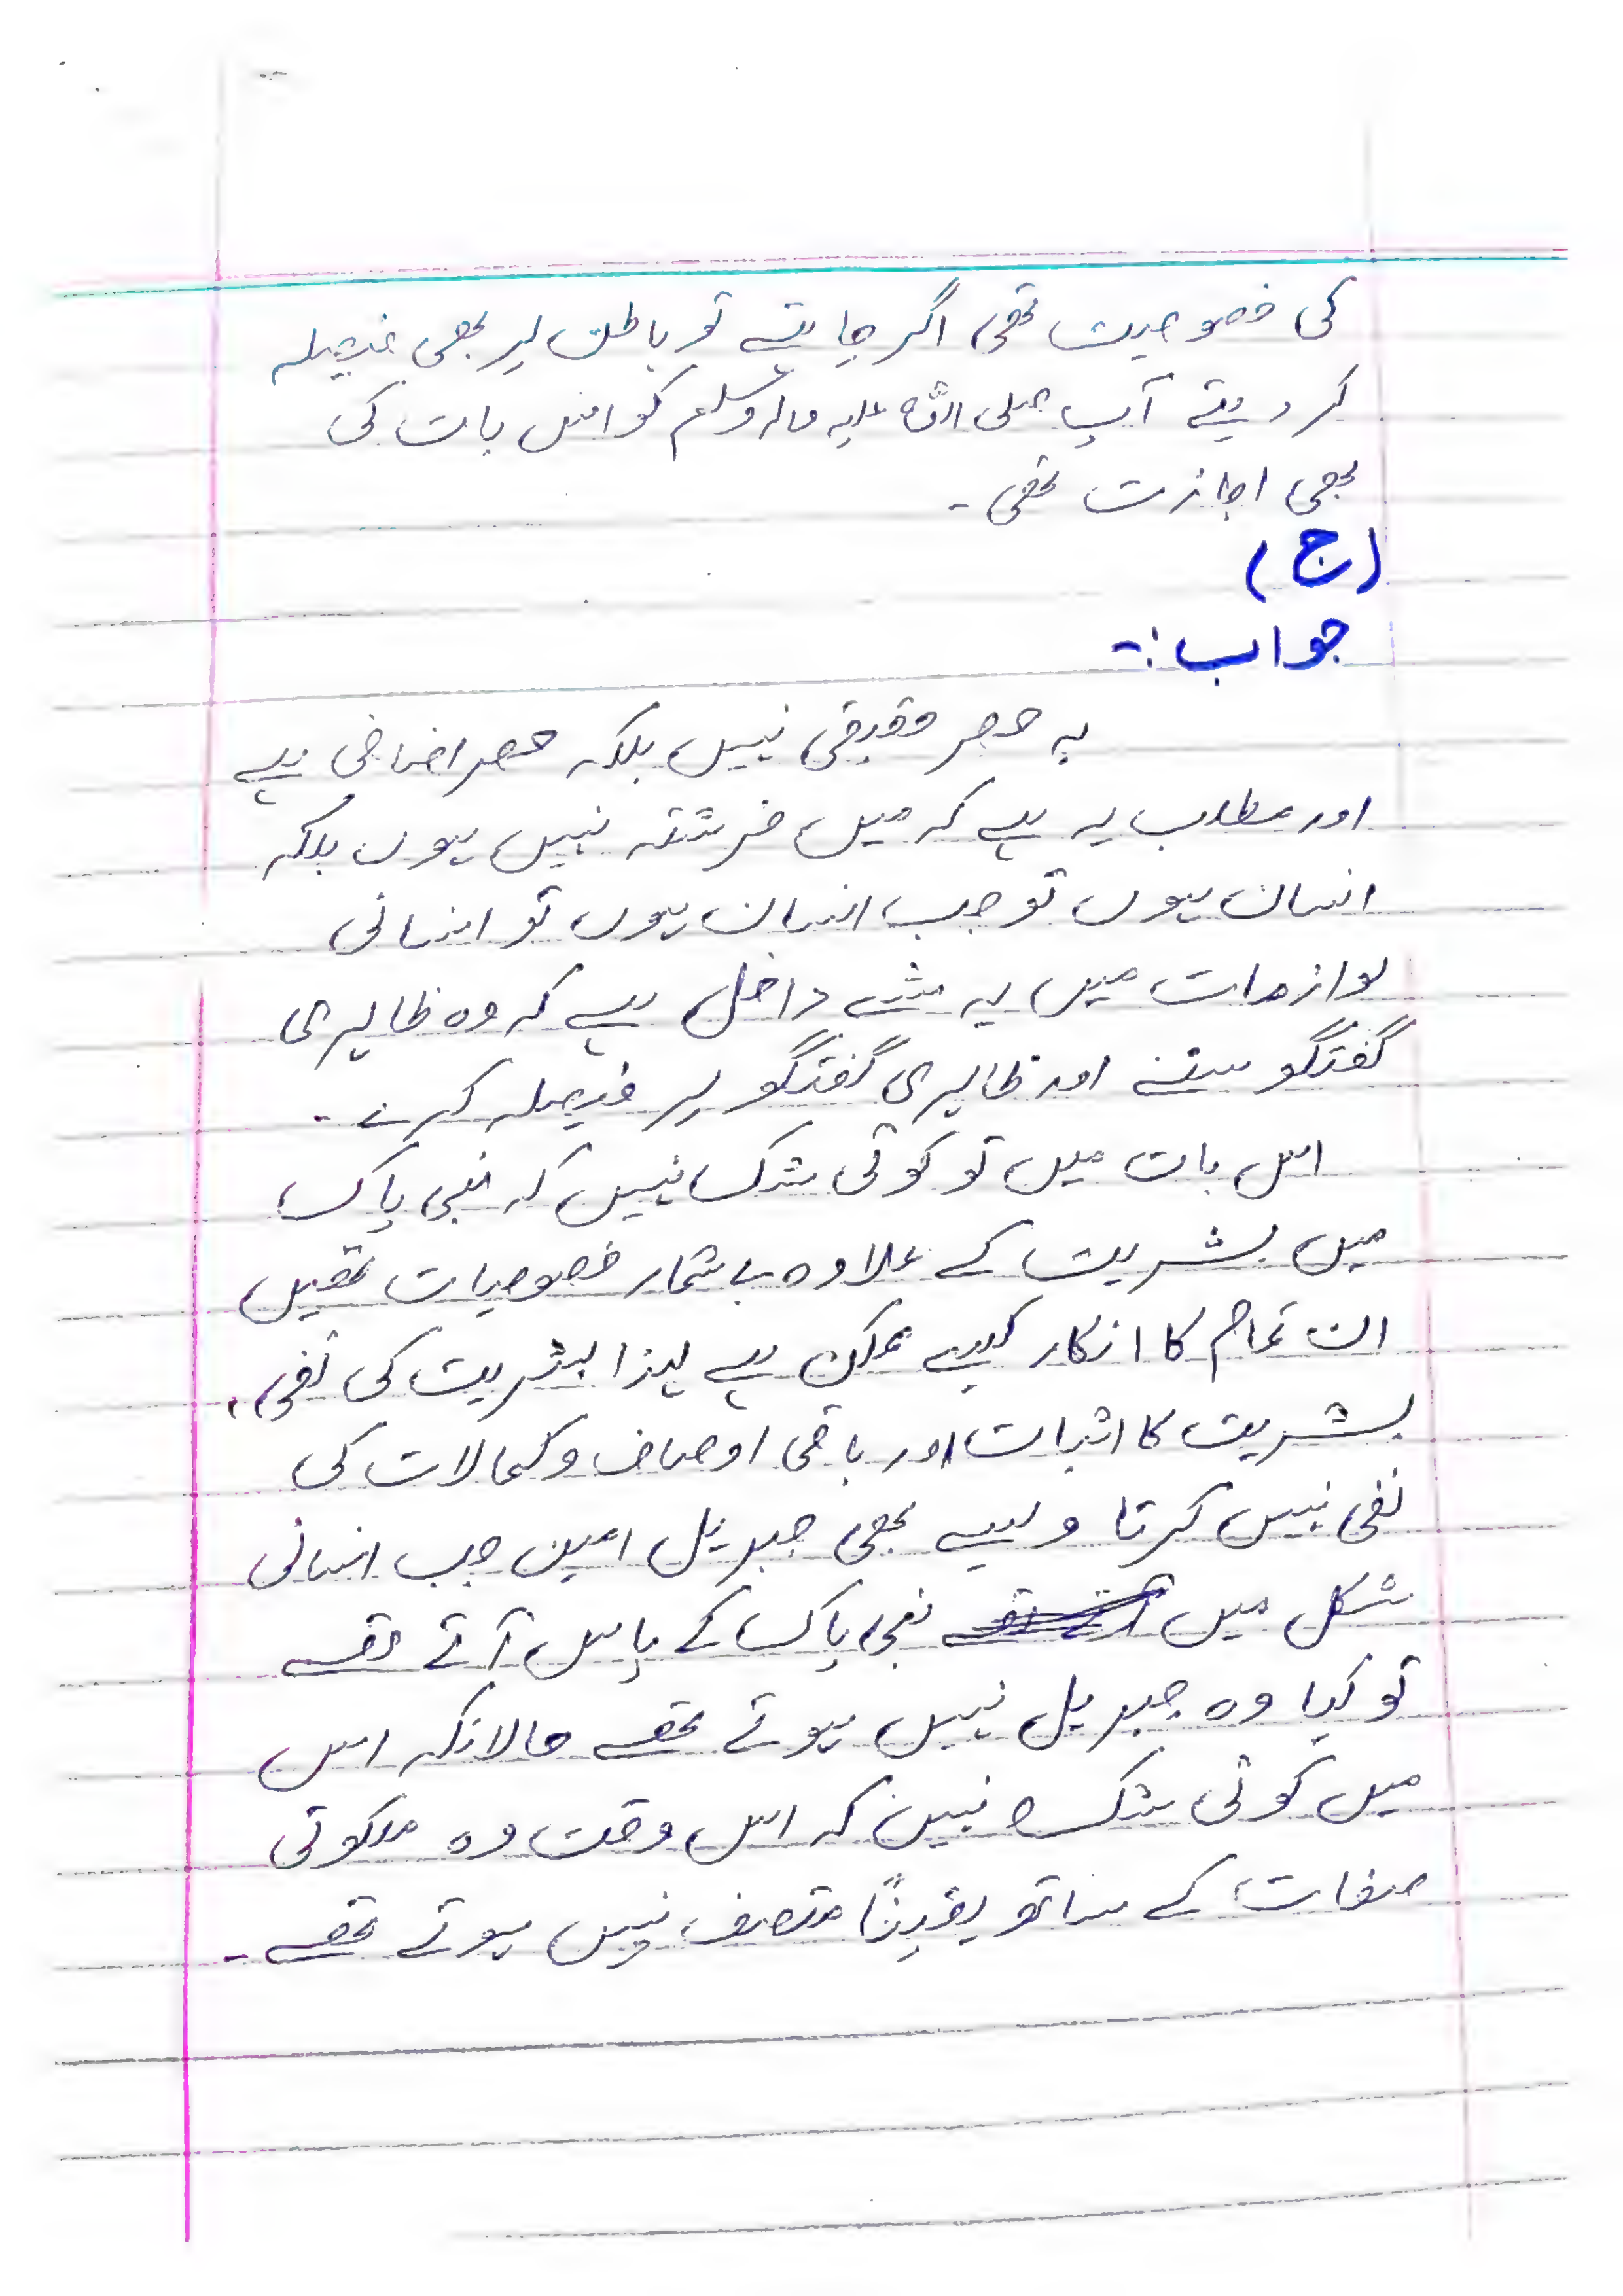 کی خصوصیت تھی اگر چاہتے تو باطن پر بھی فیصلہ
کر دیتے آپ صلی اللہ علیہ والہ وسلم کو اس بات کی
بھی اجازت تھی ۔
(ج)
جواب :-
یہ حصر حقیقی نہیں بلکہ حصر اضافی ہے
اور مطلب یہ ہے کہ میں فرشتہ نہیں ہوں بلکہ
انسان ہوں تو جب انسان ہوں تو انسانی
لوازمات میں یہ شے داخل ہے کہ وہ ظاہری
گفتگو سنے اور ظاہری گفتگو پر فیصلہ کرے ۔
اس بات میں تو کوئی شک نہیں کہ نبی پاک
میں بشریت کے علاوہ بے شمار خصوصیات تھیں
ان تمام کا انکار کیسے ممکن ہے لہذا بشریت کی نفی ،
بشریت کا اثبات اور باقی اوصاف و کمالات کی
نفی نہیں کرتا ویسے بھی جبریل امین جب انسانی
شکل میں نبی پاک کے پاس آتے تھے
تو کیا وہ جبریل نہیں ہوتے تھے حالانکہ اس
میں کوئی شک نہیں کہ اس وقت وہ ملکوتی
صفات کے ساتھ یقیناً متصف نہیں ہوتے تھے ۔